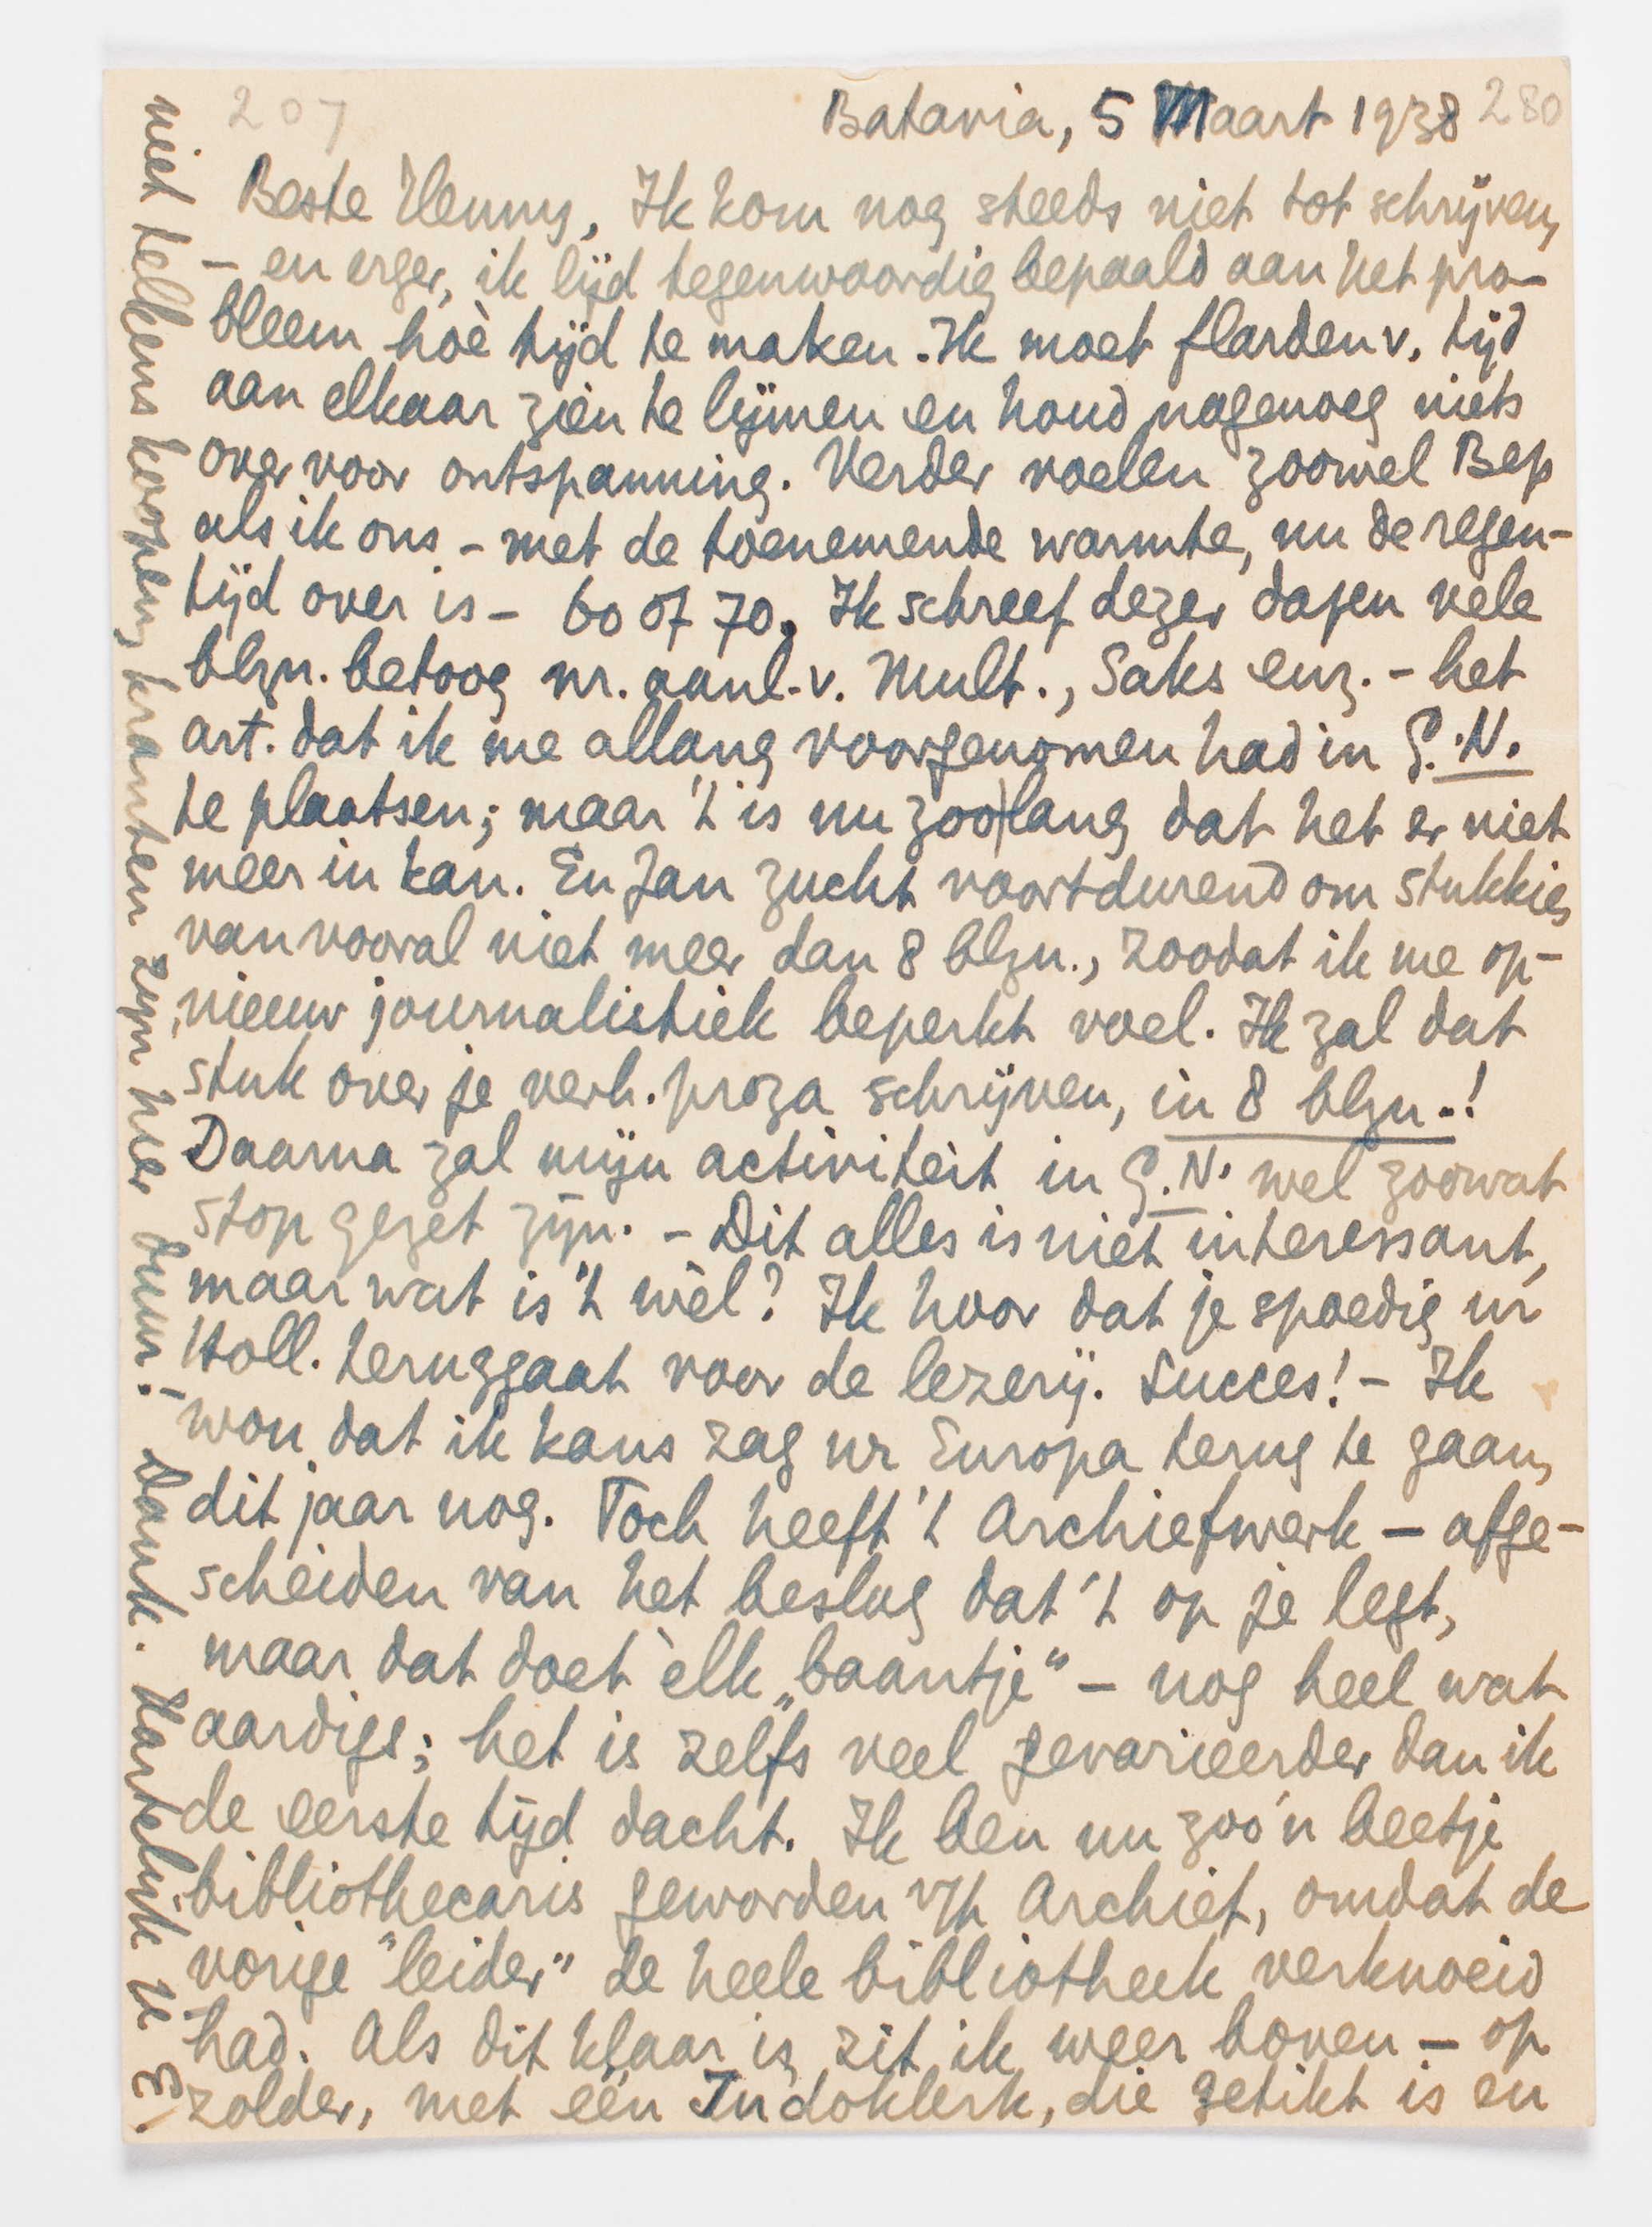 207
Batavia, 5 Maart 1938
280
Beste Henny, Ik kom nog steeds niet tot schrijven,
– en erger, ik lijd tegenwoordig bepaald aan het pro-
bleem hoè tijd te maken. Ik moet flarden v. tijd
aan elkaar zien te lijmen en houd nagenoeg niets
over voor ontspanning. Verder voelen zoowel Bep
als ik ons – met de toenemende warmte, nu de regen-
tijd over is – 60 of 70. Ik schreef dezer dagen vele
blzn. betoog nr. aanl. v. Mult., Saks enz. – het
art. dat ik me allang voorgenomen had in G.N.
te plaatsen; maar 't is nu zoo lang dat het er niet
meer in kan. En Jan zucht voortdurend om stukkies
van vooral niet meer dan 8 blzn., zoodat ik me op-
nieuw journalistiek beperkt voel. Ik zal dat
stuk over je verh. proza schrijven, in 8 blzn.!
Daarna zal mijn activiteit in G.N. wel zoowat
stop gezet zijn. – Dit alles is niet interessant,
maar wat is 't wèl? Ik hoor dat je spoedig nr
Holl. teruggaat voor de lezerij. Succes! – Ik
wou dat ik kans zag nr Europa terug te gaan,
dit jaar nog. Toch heeft 't Archiefwerk – afge-
scheiden van het beslag dat 't op je legt,
maar dat doet èlk „baantje“ – nog heel wat
aardigs; het is zelfs veel gevarieerder dan ik
de eerste tijd dacht. Ik ben nu zoo'n beetje
bibliothecaris geworden v/h Archief, omdat de
vorige "leider" de heele bibliotheek verknoeid
had. Als dit klaar is, zit ik weer boven – op
zolder, met één Indoklerk, die getikt is en
niet telkens koopen; kranten zijn hier duur! Dank. Hartelijk uw E.